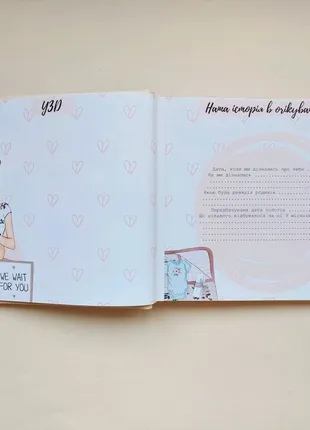 УЗД
WE WAIT
FOR YOU
Наша історія в очікуван
Дата, коли ми дізнались про тебе
Як ми дізналися
Якою була реакція родичів
Передбачувана дата пологів
Що цікавого відбувалося за ці 9 місяців